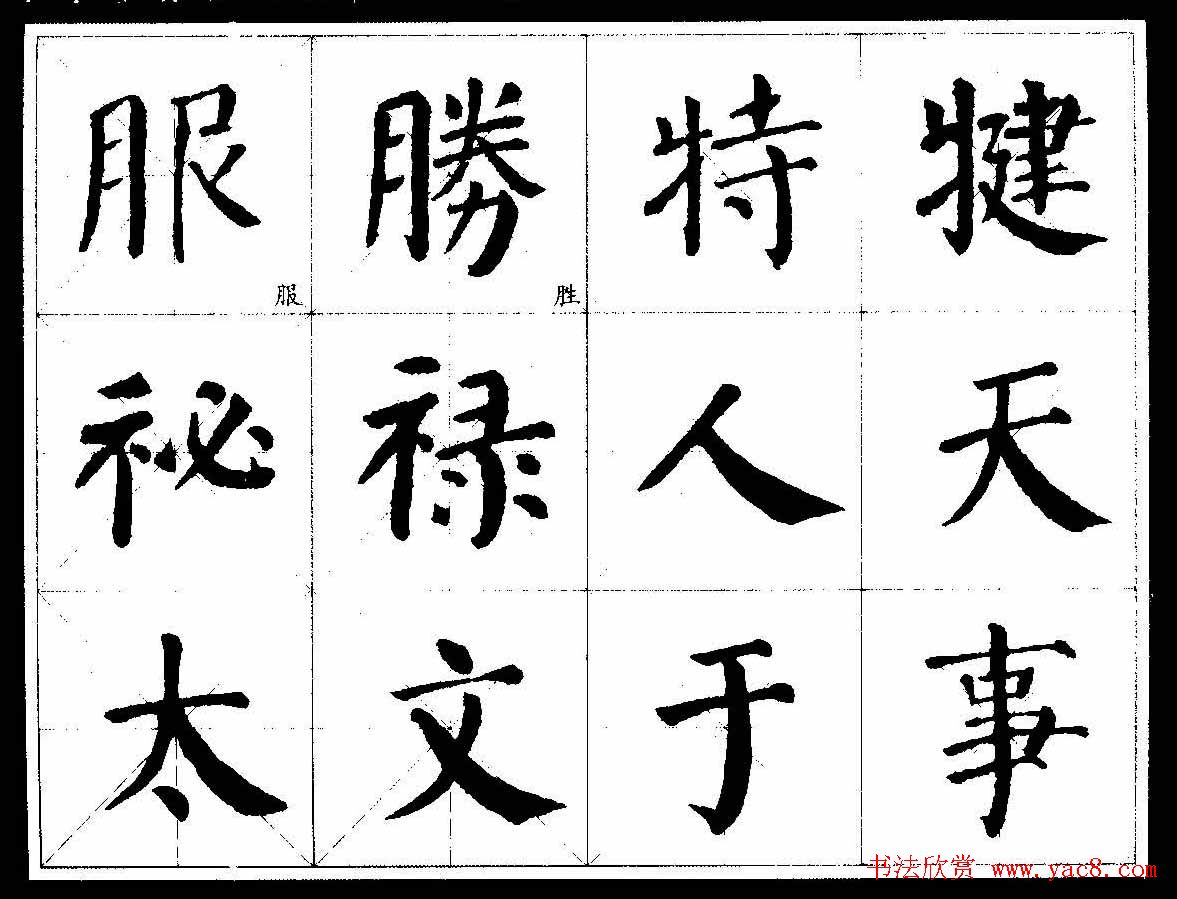 服 勝 特 犍
服 胜
祕 禄 人 天
太 文 于 事
书法欣赏 www.yac8.com